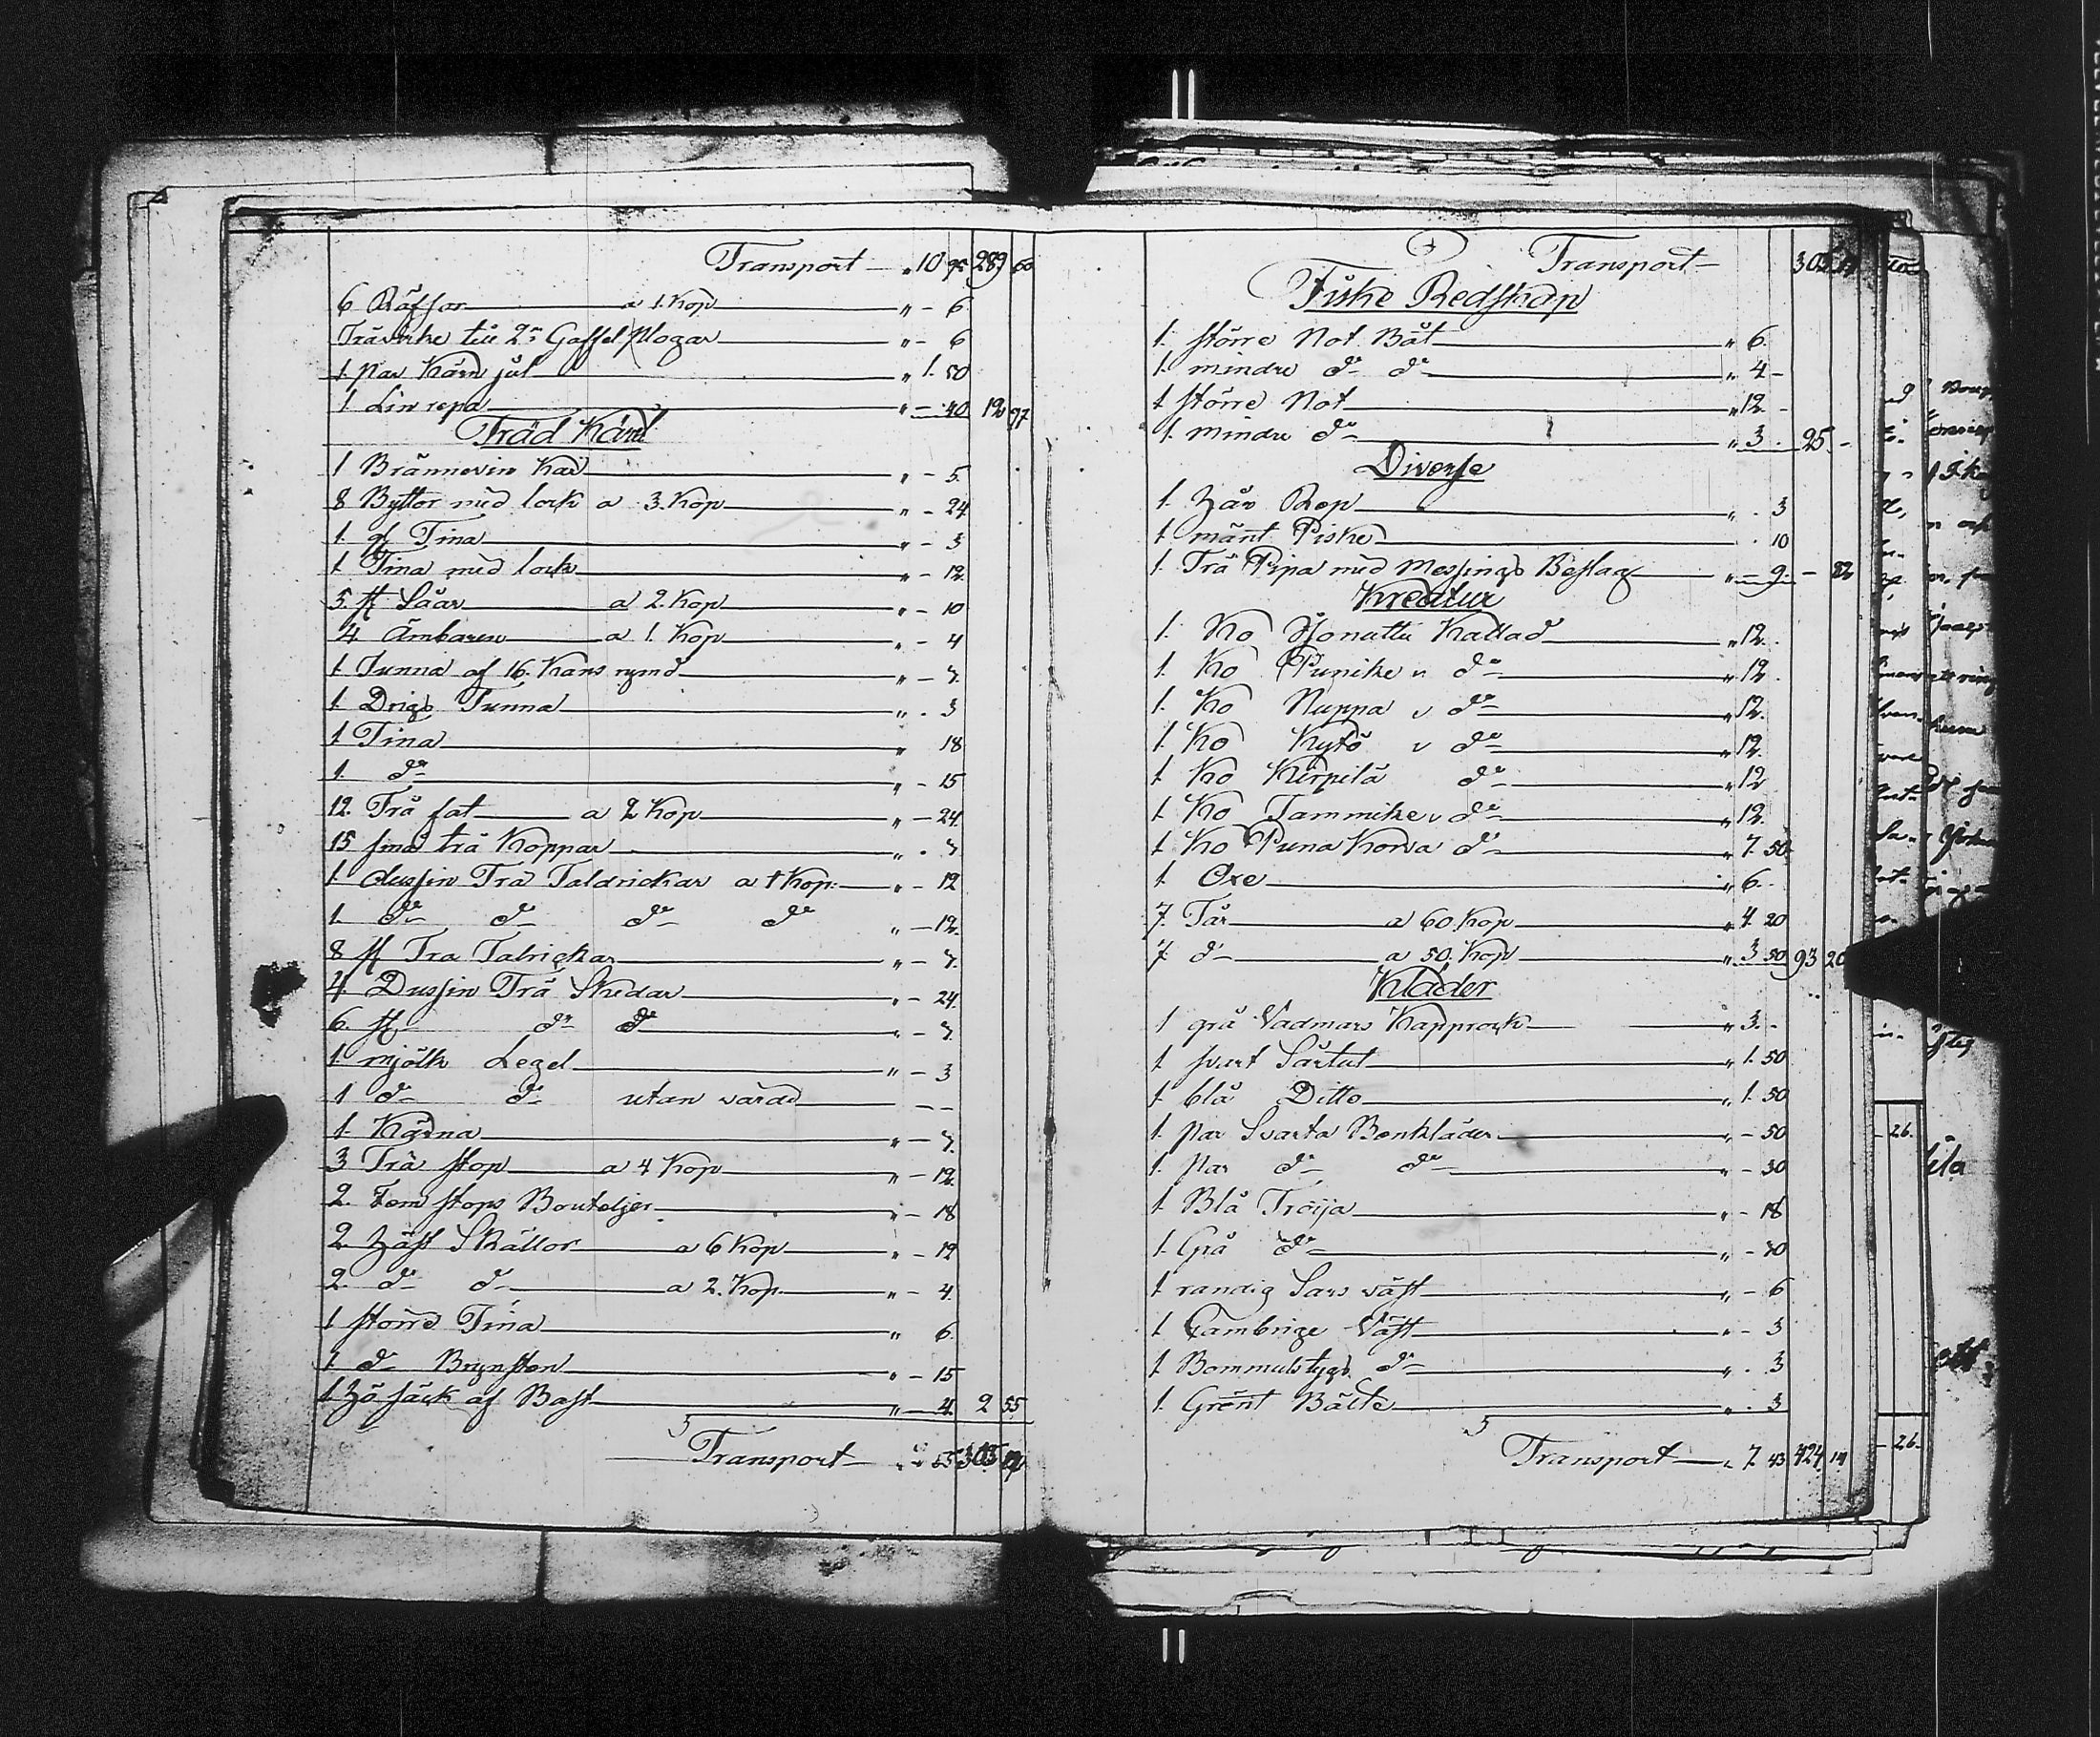 Transport — „ 10 95 289 60
6 Räfsor — a 1 Kop — „ - 6
Trävirke till 2ne Gaffel Plogar — „ - 6
1 par Kärn jul — „ 1. 50
1 Lin repa — „ - 40 12 97
Träd Käril
1 Brännevin Kar — „ - 5
8 Byttor med lock a 3. Kop — „ - 24
1 gl Tina — „ - 3
1 Tina med lock — „ - 12
5 st Såar — a 2. Kop — „ - 10
4 Ämbaren — a 1. Kop — „ - 4
1 Tunna af 16. Kans rymd — „ -
1 Drigs Tunna — „ - 3
1 Tina — „ 18
1. do — „ - 15
12. Trä fat — a 2 Kop — „ - 24
15 små trä Koppar — „ -
1 dussin Trä Taldrickar a 1 Kop: — „ - 12
1. do do do do „ - 12.
8 st Tra Talrickar — „ -
4. Dussin Trä Skedar — „ - 24.
6. st do do — „ -
1. mjölk Legel — „ - 3
1 do do utan värde — - -
1. Kärna — „ -
3 Trä stop — a 4 Kop — „ - 12.
2. Fem stops Bouteljer — „ - 18
2 Häst Skällor — a 6 Kop — „ - 12
2. do do — a 2. Kop — „ - 4.
1 större Tina — „ 6.
1. do Brynsten — „ - 15
1 Hö säck af Bast — „ - 4. 2 55
Transport — 2 55 305 12
Transport — 305 12
Fiske Redskap
1. större Not Båt — „ 6.
1. mindre do do — „ 4 -
1 större Not — „ 12. -
1. mindre do — „ 3. 25. -
Diverse
1. Hår Rep — „ . 3
1. mänt Piske — . 10
1. Trä Pipa med Messings Beslag — „ - 9. - 22
Kreatur
1. Ko Sjonuttu Kallad — „ 12.
1. Ko Punike „ do — „ 12.
1. Ko Nuppa „ do — „ 12.
1. Ko Kytö „ do — „ 12.
1 Ko Kirpilä do — „ 12
1 Ko Tammike „ do — „ 12.
1 Ko Puna Korva do — „ 7 50
1. Oxe — „ 6.
7. Får — a 60. Kop — „ 4 20
7. do — a 50. Kop — „ 3 50 93 20
Kläder
1 grå Vadmars Kapprock — „ 3. -
1 svart Sårtut — „ 1. 50
1. blå Ditto — „ 1. 50
1. par Svarta Benkläder — „ - 50
1. par do do — „ - 30
1 Blå Tröija — „ - 18
1. Grå do — „ - 30
1 randig Sars väst — „ - 6
1 Cambrige Väst — „ - 3
1 Bommulstygs do — „ . 3
1. Grönt Bälte — „ . 3
Transport — „ 7. 43 424 14